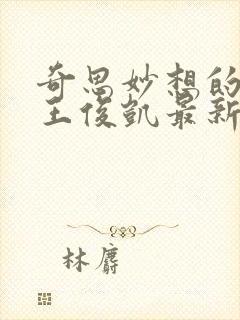 奇思妙想的
王俊凯最新
林麝